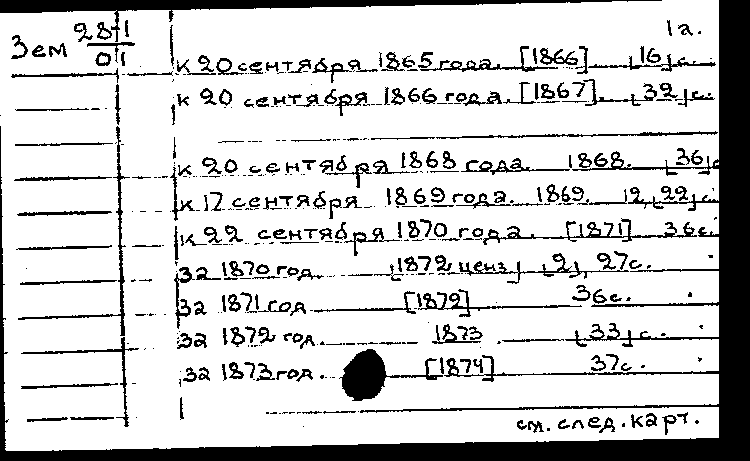 Зем 28-1/01
1а.
к 20 сентября 1865 года. [1866]. ⌊16⌋с.
к 20 сентября 1866 года. [1867]. ⌊32⌋с.
к 20 сентября 1868 года. 1868. ⌊36⌋с
к 17 сентября 1869 года. 1869. 12,⌊22⌋с.
к 22 сентября 1870 года. [1871] 36с.
За 1870 год. ⌊1872 ценз⌋ ⌊2⌋, 27с.
За 1871 год [1872] 36с.
За 1872 год. 1873 ⌊33⌋с.
За 1873 год. [1874]. 37с.
см. след. карт.